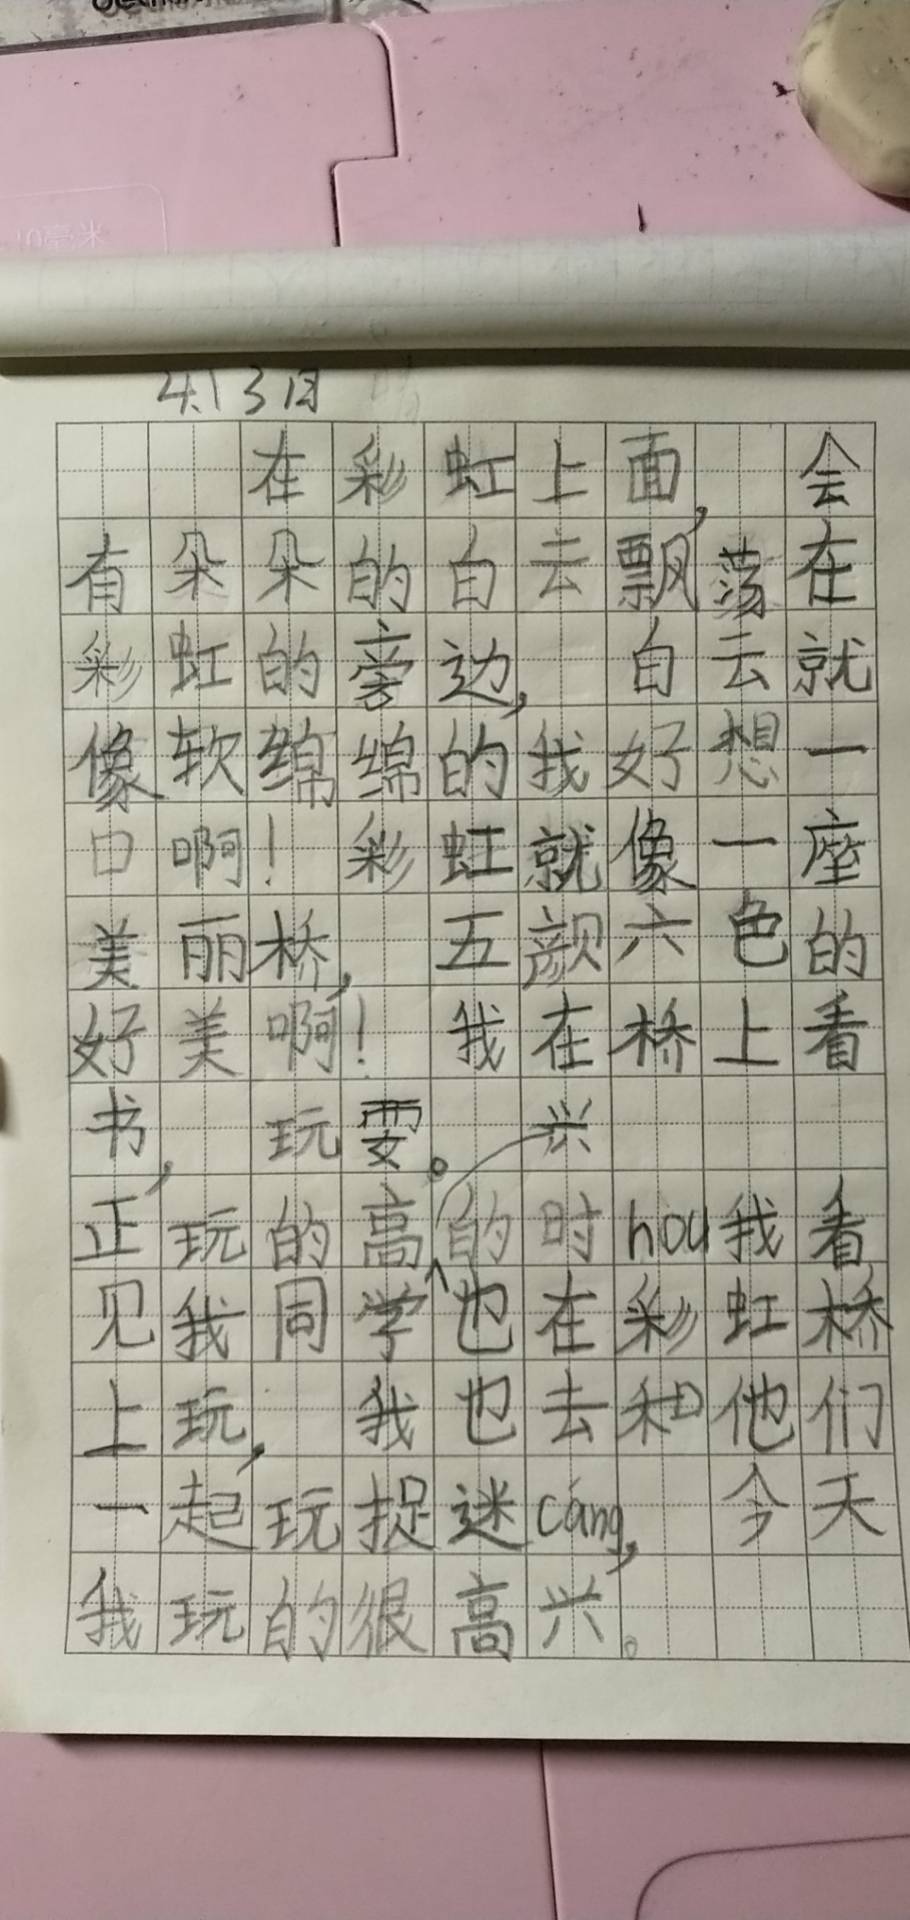 10毫米
4.13日
在彩虹上面,会
有朵朵的白云飘荡在
彩虹的旁边,白云就
像软绵绵的我好想一
口啊!彩虹就像一座
美丽桥,五颜六色的
好美啊!我在桥上看
书,玩耍。
正,玩的高兴的时hou我看
见我同学也在彩虹桥
上玩,我也去和他们
一起玩捉迷cáng,今天
我玩的很高兴。